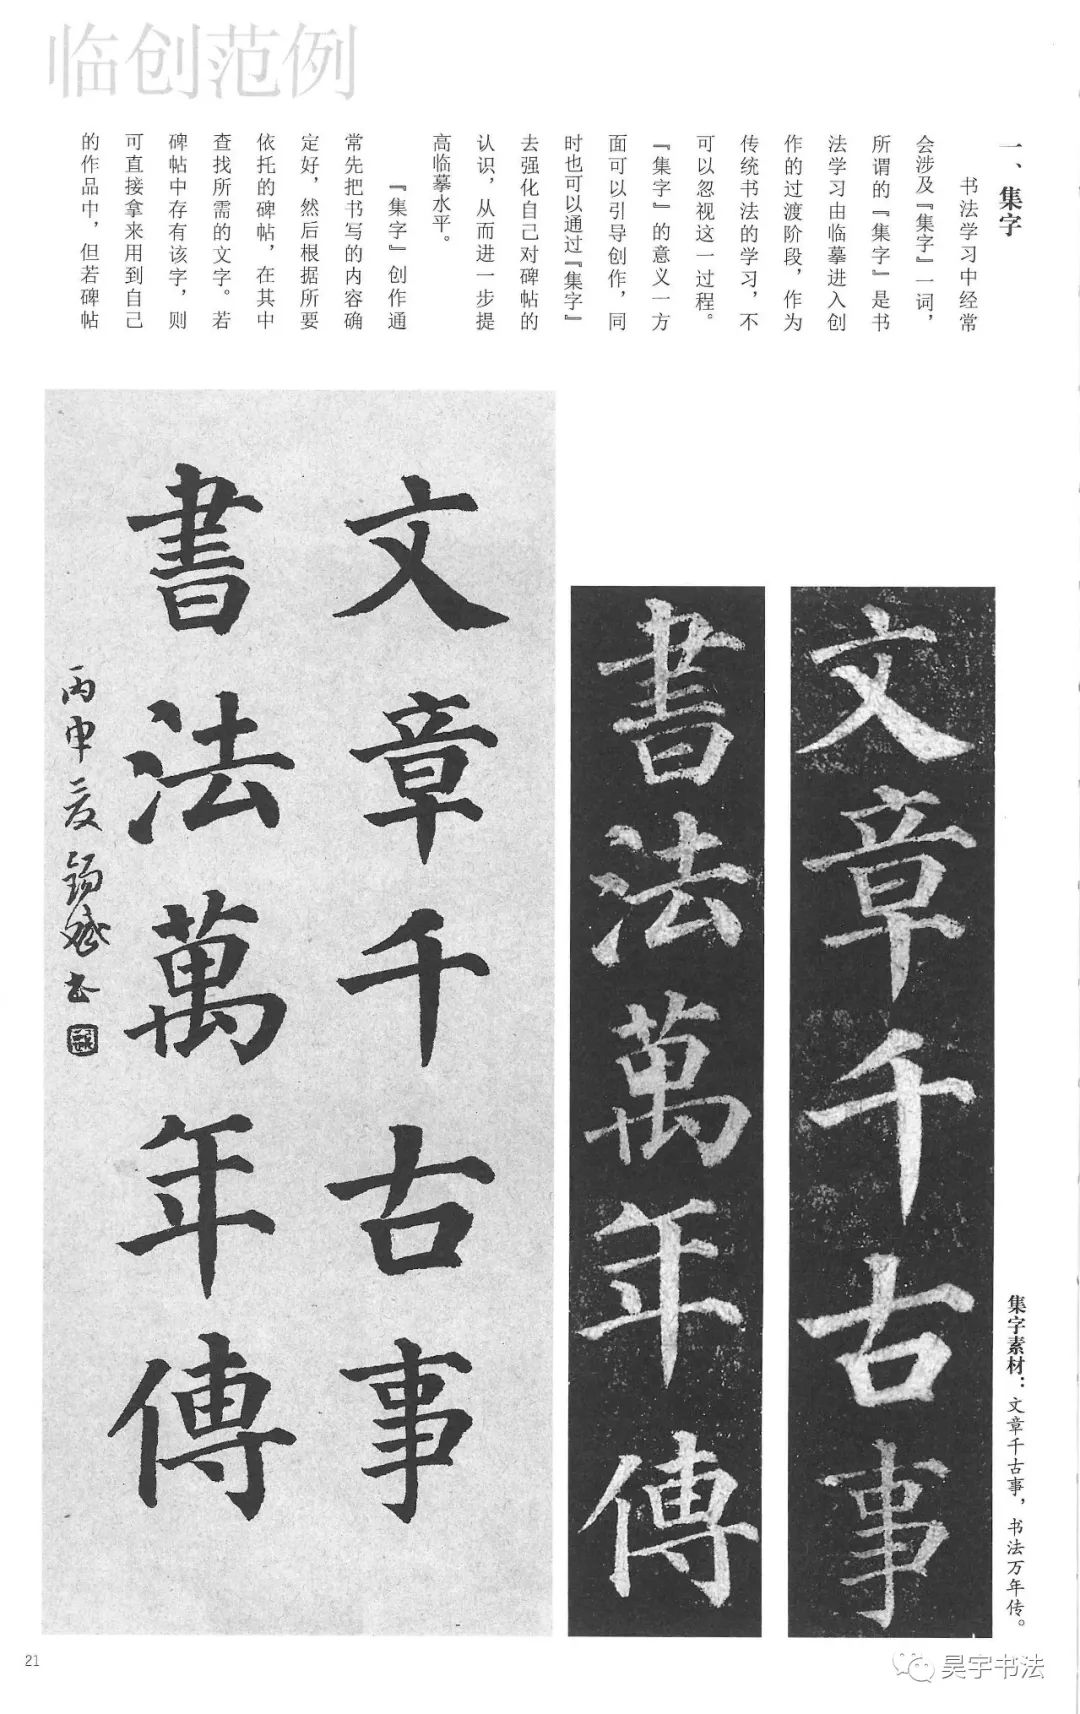 临创范例
一、集字
书法学习中经常
会涉及『集字』一词，
所谓的『集字』是书
法学习由临摹进入创
作的过渡阶段，作为
传统书法的学习，不
可以忽视这一过程。
『集字』的意义一方
面可以引导创作，同
时也可以通过『集字』
去强化自己对碑帖的
认识，从而进一步提
高临摹水平。
『集字』创作通
常先把书写的内容确
定好，然后根据所要
依托的碑帖，在其中
查找所需的文字。若
碑帖中存有该字，则
可直接拿来用到自己
的作品中，但若碑帖
集字素材：文章千古事，书法万年传。
文章千古事
書法萬年傳
文章千古事
書法萬年傳
丙申夏锡斌书
21
昊宇书法